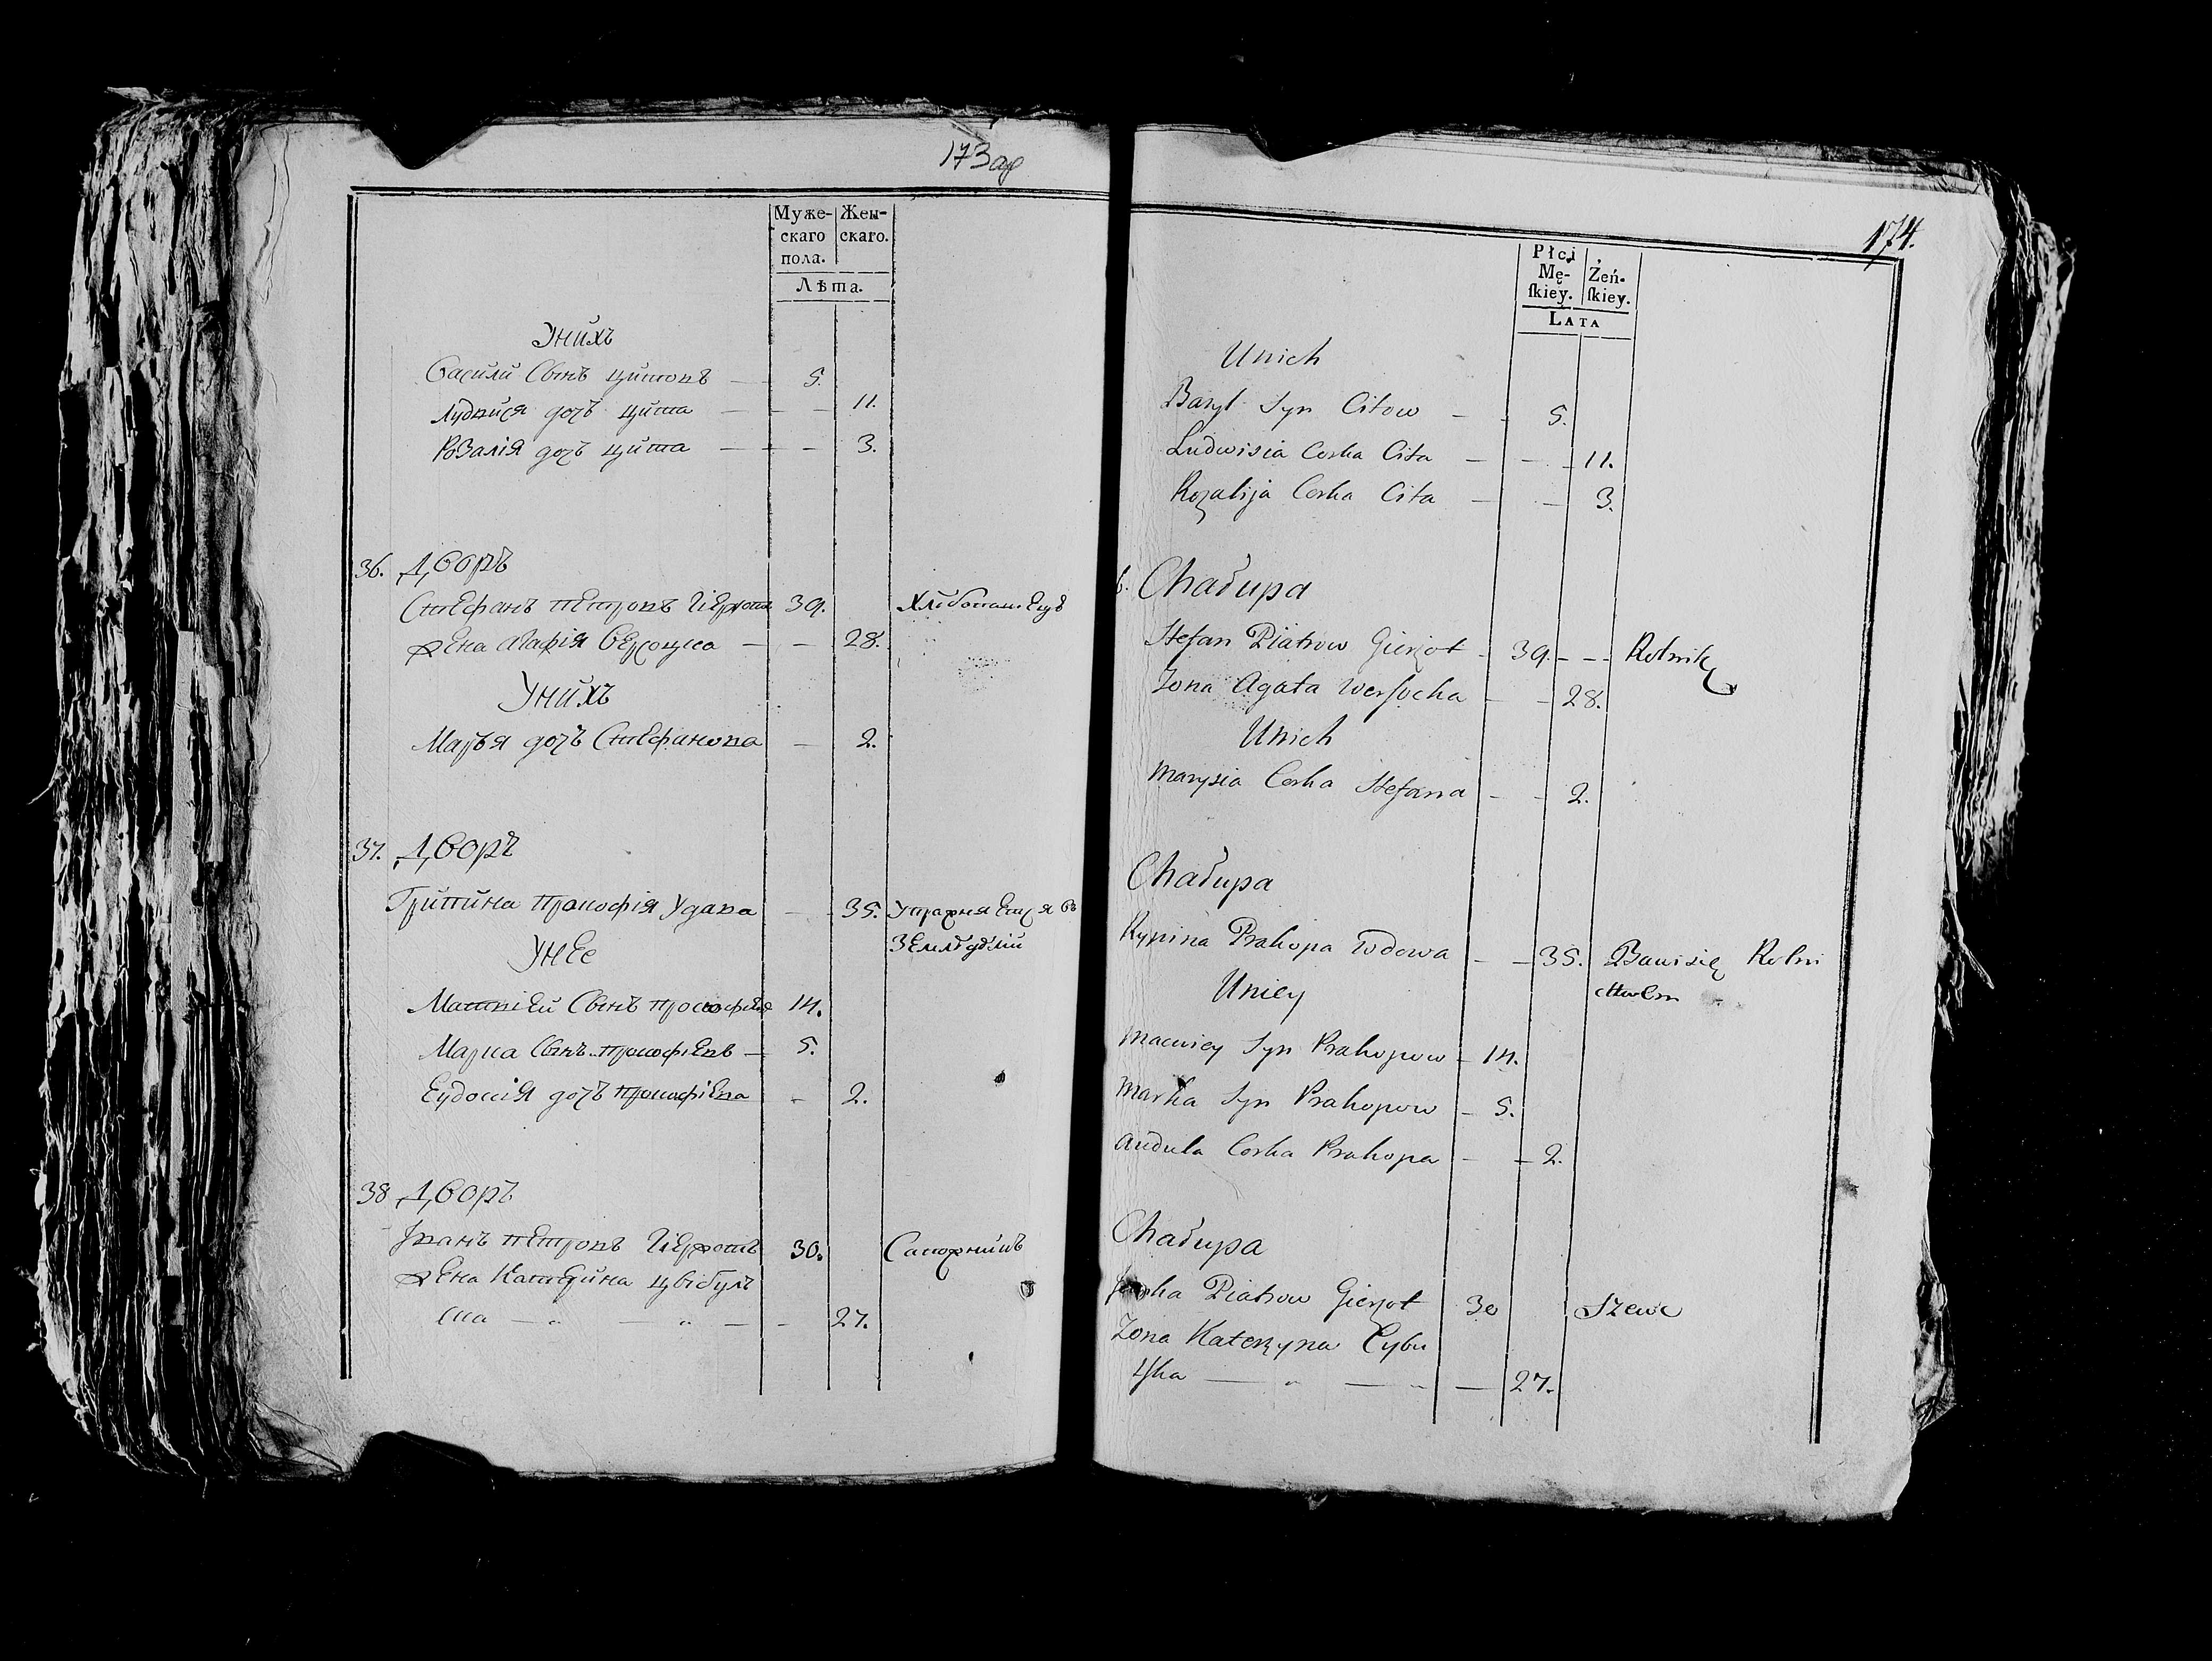 173 об
Муже- Жен-
скаго скаго.
пола.
Лѣта.
У нихъ
Васили Сынъ цитовъ — 5.
Лудвися дочъ цита — — — 11.
Розалія дочъ цита — — — 3.
36. Дворъ
Стефанъ Петровъ 39. Хлебопашецъ
жена Агафія — — 28.
У нихъ
Марья дочъ Стефанова — 2.
37. Дворъ
Грипина Прокофія Удава — — 35. Упражняется въ
Земледѣлій
У нее
Матвіей Сынъ 14.
Марка Сынъ Прокофіевъ — 5.
Еудокія дочъ Прокофіева — 2.
38 Дворъ
Иванъ Петровъ 30. Сапожникъ
жена Катерина Цвібуль
ска — „ — „ — — 27.
174.
Płci
Mę- Żeń-
ſkiey. ſkiey.
LATA
Unich
Bazyl Syn Citow — - 5.
Ludwisia Corka Cita — — - 11.
Rozalija Corka Cita — — 3.
6. Chałupa
Stefan Piatrow Gierżot - 39. - - - Rolnik
Zona Agata Wersocka — — 28.
Unich
Marysia Corka Stefana - - 2.
Chałupa
Rypina Prakopa Wdowa - — 35. Bawi się Rolni
ctwem
Uniey
Maciey Syn Prakopow - 14.
Marka Syn Prakopow - 5.
Audula Corka Prakopa - - 2.
Chałupa
Piatrow Gierżot 30 Szewc
Zona Katerzyna Cybu
lska — „ — „ — 27.